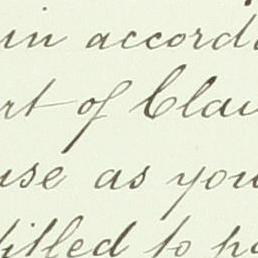 in accorda
rt of Clau
use as you
filled to pa